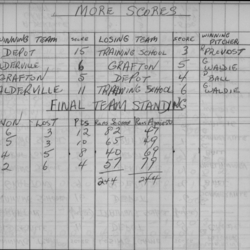 MORE SCORES
WINNING TEAM SCORE LOSING TEAM SCORE WINNING PITCHER
DEPOT 15 TRAINING SCHOOL 3 PROVOST
ALDERVILLE 6 GRAFTON 5 WALDIE
GRAFTON 5 DEPOT 4 BALL
ALDERVILLE 11 TRAINING SCHOOL 6 WALDIE
FINAL TEAM STANDING
WON LOST PTS RUNS SCORED RUNS AGAINST
6 3 12 82 47
5 3 10 65 49
4 5 8 40 69
2 6 4 57 79
244 244